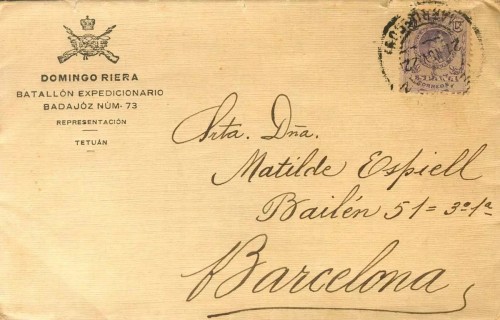 DOMINGO RIERA
BATALLÓN EXPEDICIONARIO
BADAJÓZ NÚM. 73
REPRESENTACIÓN
TETUÁN
Srta. Dña.
Matilde Espiell
Bailén 51 = 3º 1ª
Barcelona
CORREOS